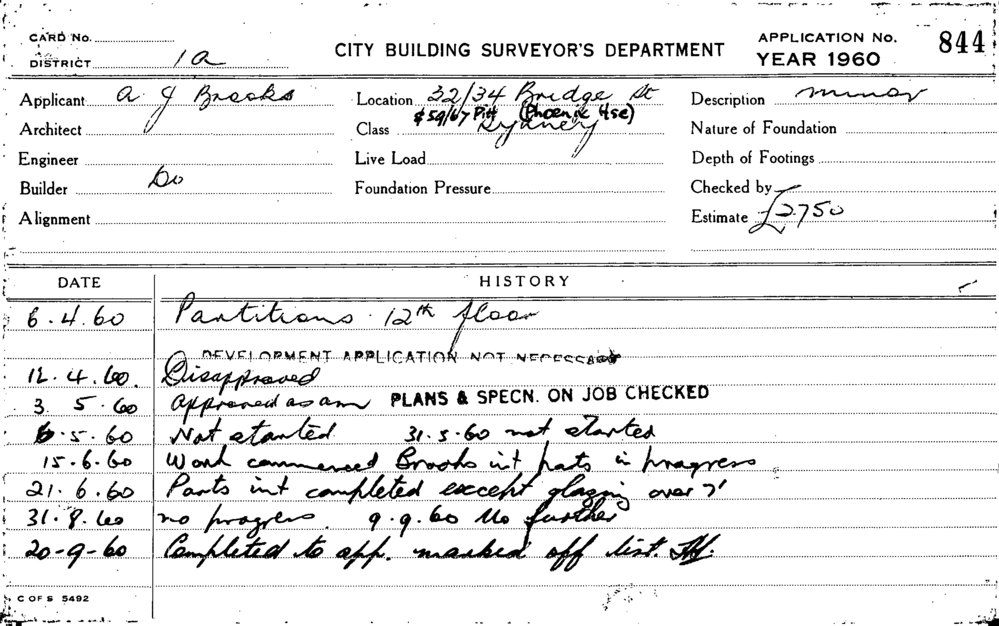 CARD No.
DISTRICT 1a
CITY BUILDING SURVEYOR'S DEPARTMENT
APPLICATION No. 844
YEAR 1960
Applicant A J Brooks
Location 32/34 Bridge St
& 59/67 Pitt (Phoenix Hse)
Description minor
Architect
Class Sydney
Nature of Foundation
Engineer
Live Load
Depth of Footings
Builder Do
Foundation Pressure
Checked by
Alignment
Estimate £2750
DATE HISTORY
6.4.60 Partitions 12th floor
DEVELOPMENT APPLICATION NOT NECESSARY
12.4.60. Disapproved
3 5.60 Approved as am PLANS & SPECN. ON JOB CHECKED
6.5.60 Not started 31.5.60 not started
15.6.60 Work commenced Brooks int parts in progress
21.6.60 Parts int completed except glazing over 7'
31.8.60 no progress. 9.9.60 No further
20-9-60 Completed to app. marked off list.
C OF S 5492